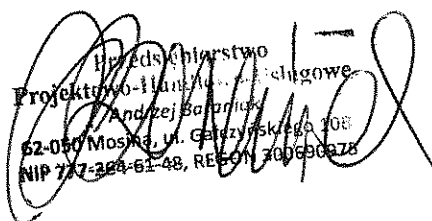 Przedsiębiorstwo
Projektowo-Handlowo-Usługowe
Andrzej Baraniak
62-050 Mosina, ul. Gałczyńskiego 108
NIP 777-264-61-48, REGON 300690978